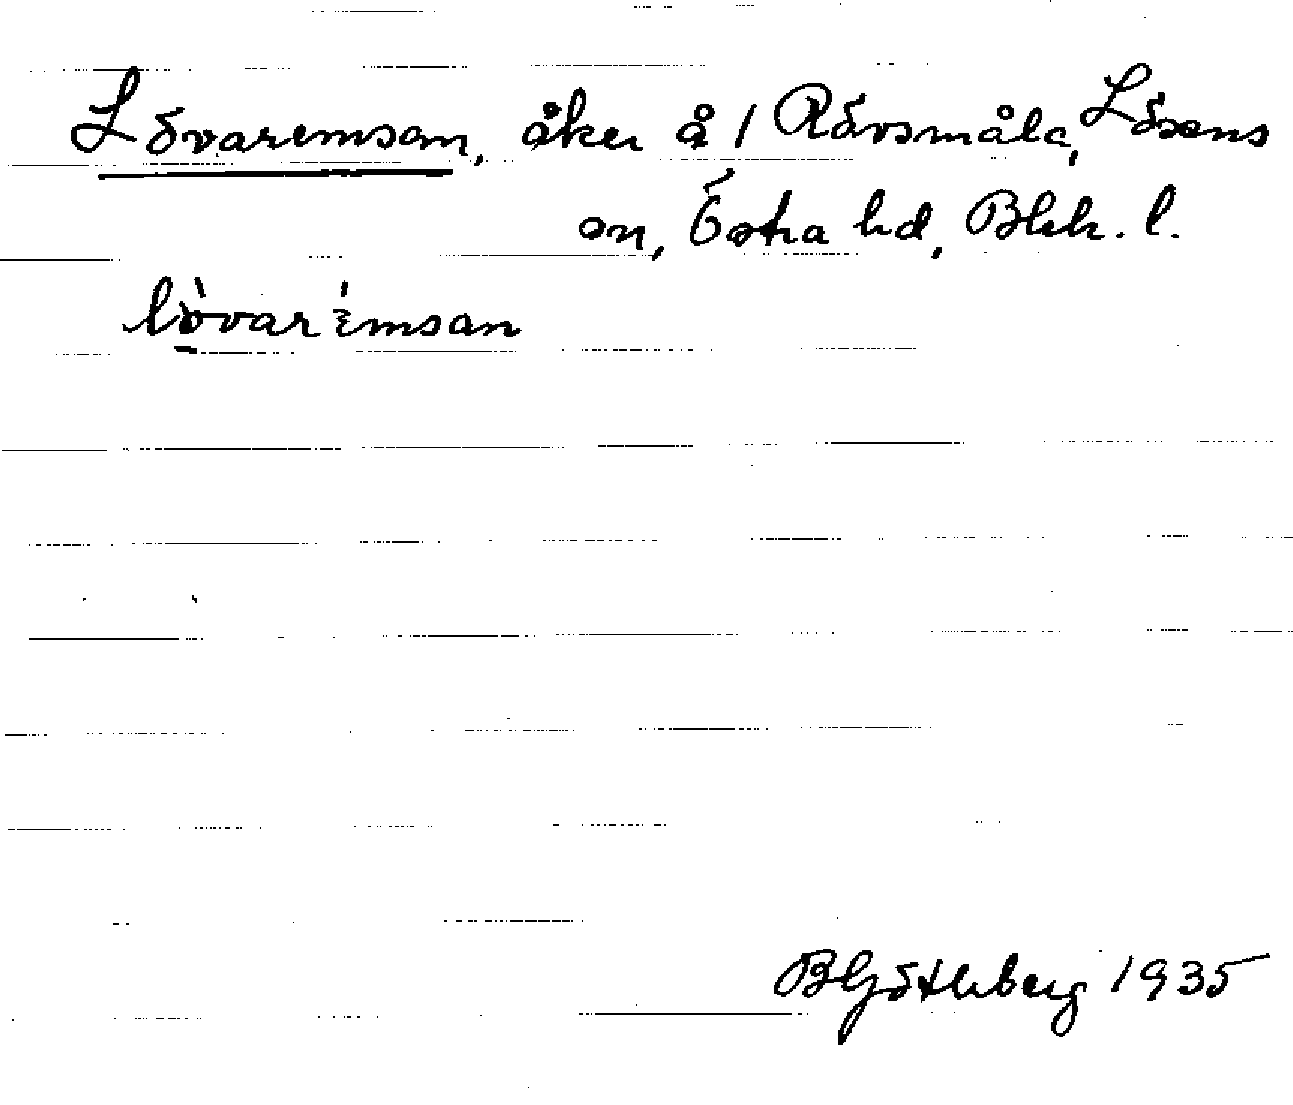 Lövaremsan, åker å 1 Rövsmåla, Lösens
sn, Östra hd, Blek. l.
lò̱varémsan
BGöthberg 1935